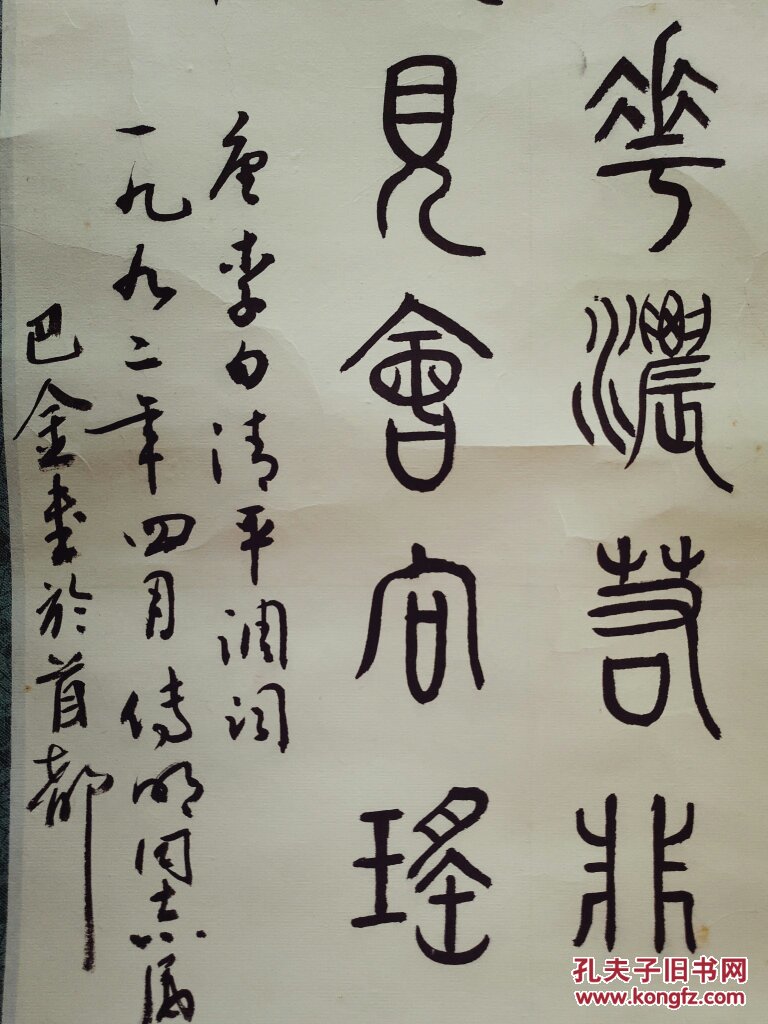 華濃若非
見會向瑤
唐李白清平調詞
一九九二年四月傳明同志属
巴金書於首都
孔夫子旧书网
www.kongfz.com